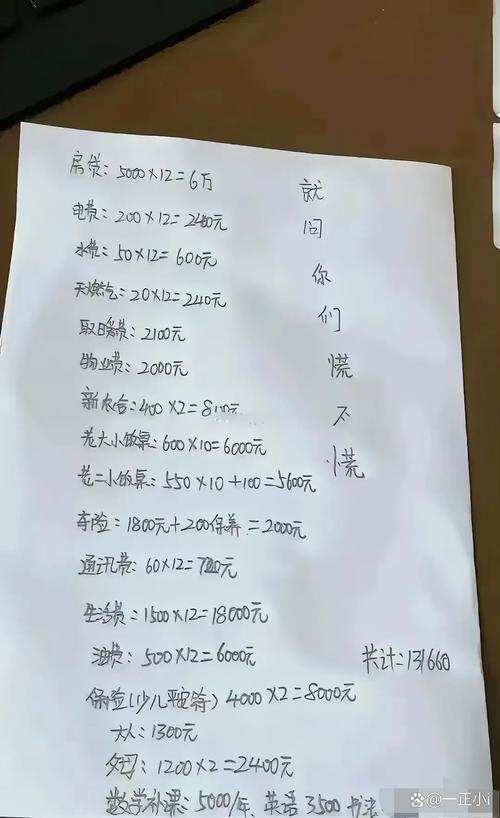 房贷：5000×12=6万
电费：200×12=2400元
水费：50×12=600元
天燃气：20×12=240元
取暖费：2100元
物业费：2000元
新农合：400×2=800元
老大小饭桌：600×10=6000元
老二小饭桌：550×10+100=5600元
车险：1800元+200保养=2000元
通讯费：60×12=720元
生活费：1500×12=18000元
油费：500×12=6000元
共计=131660
保险(少儿平安符)4000×2=8000元
大人：1300元
父母：1200×2=2400元
数学补课：5000/年、英语3500 书法
就
问
你
们
慌
不
慌
一正小i